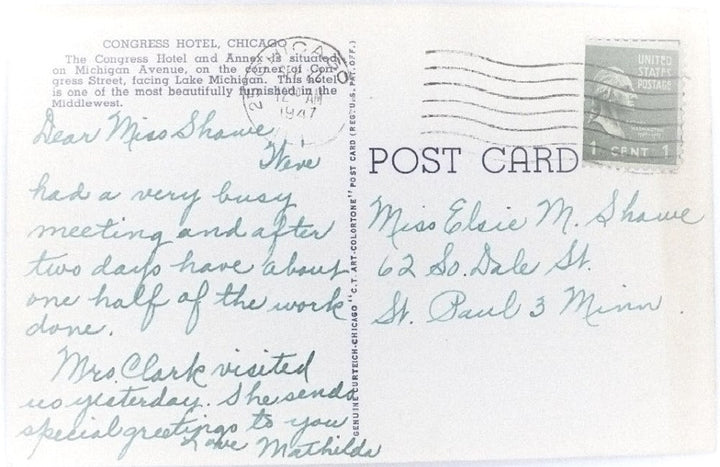 CONGRESS HOTEL, CHICAGO
The Congress Hotel and Annex is situated
on Michigan Avenue, on the corner of Con-
gress Street, facing Lake Michigan. This hotel
is one of the most beautifully furnished in the
Middlewest.
CHICAGO
12 AM
1947
UNITED
STATES
POSTAGE
WASHINGTON
1 CENT 1
Dear Miss Shawe,
Weve
had a very busy
meeting and after
two days have about
one half of the work
done.
Mrs Clark visited
us yesterday. She sends
special greetings to you
Love Mathilda
GENUINE CURTEICH-CHICAGO "C.T. ART-COLORTONE" POST CARD (REG. U.S. PAT. OFF.)
POST CARD
Miss Elsie M. Shawe
62 So. Dale St.
St. Paul 3 Minn